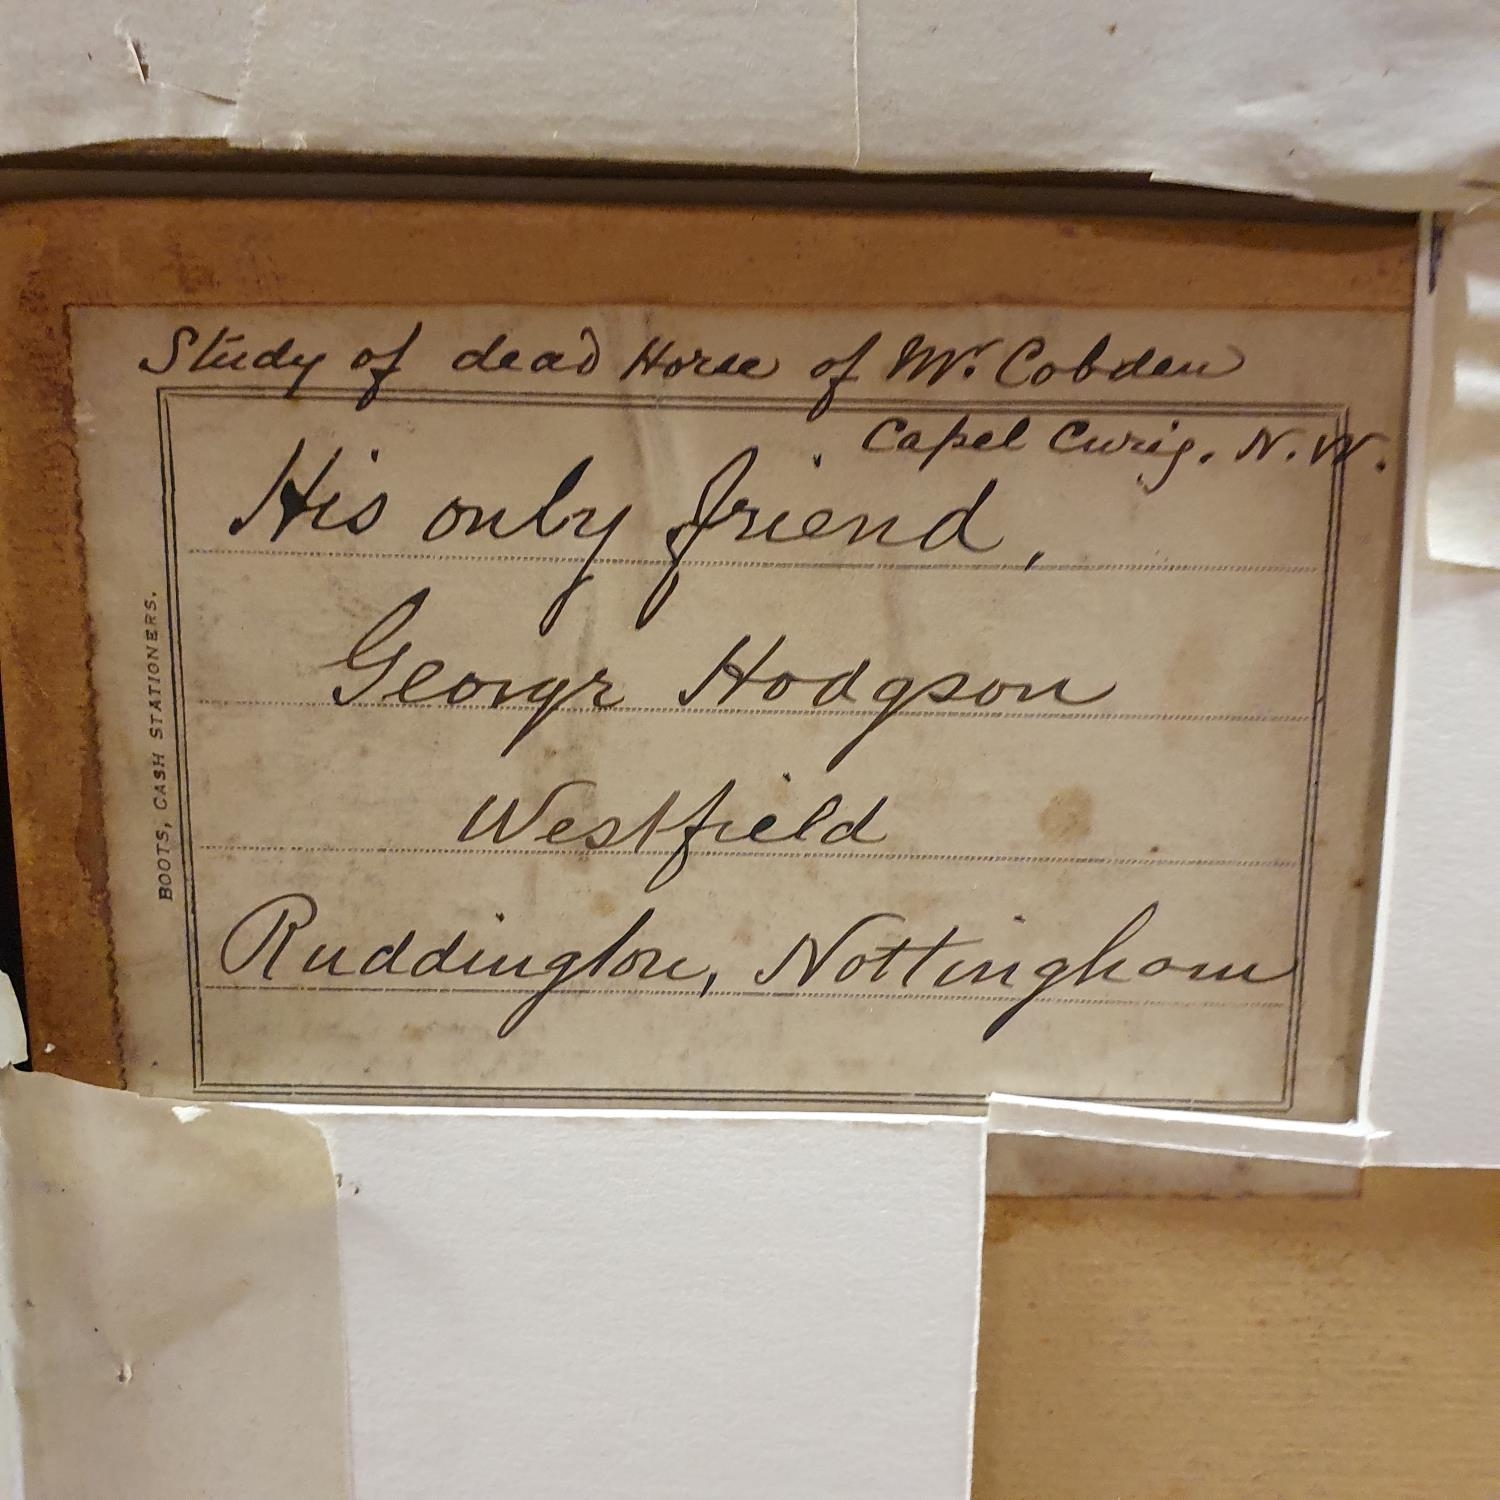 Study of dead Horse of Mr. Cobden
Capel Curig. N.W.
His only friend,
George Hodgson
Westfield
Ruddington, Nottingham
BOOTS, CASH STATIONERS.